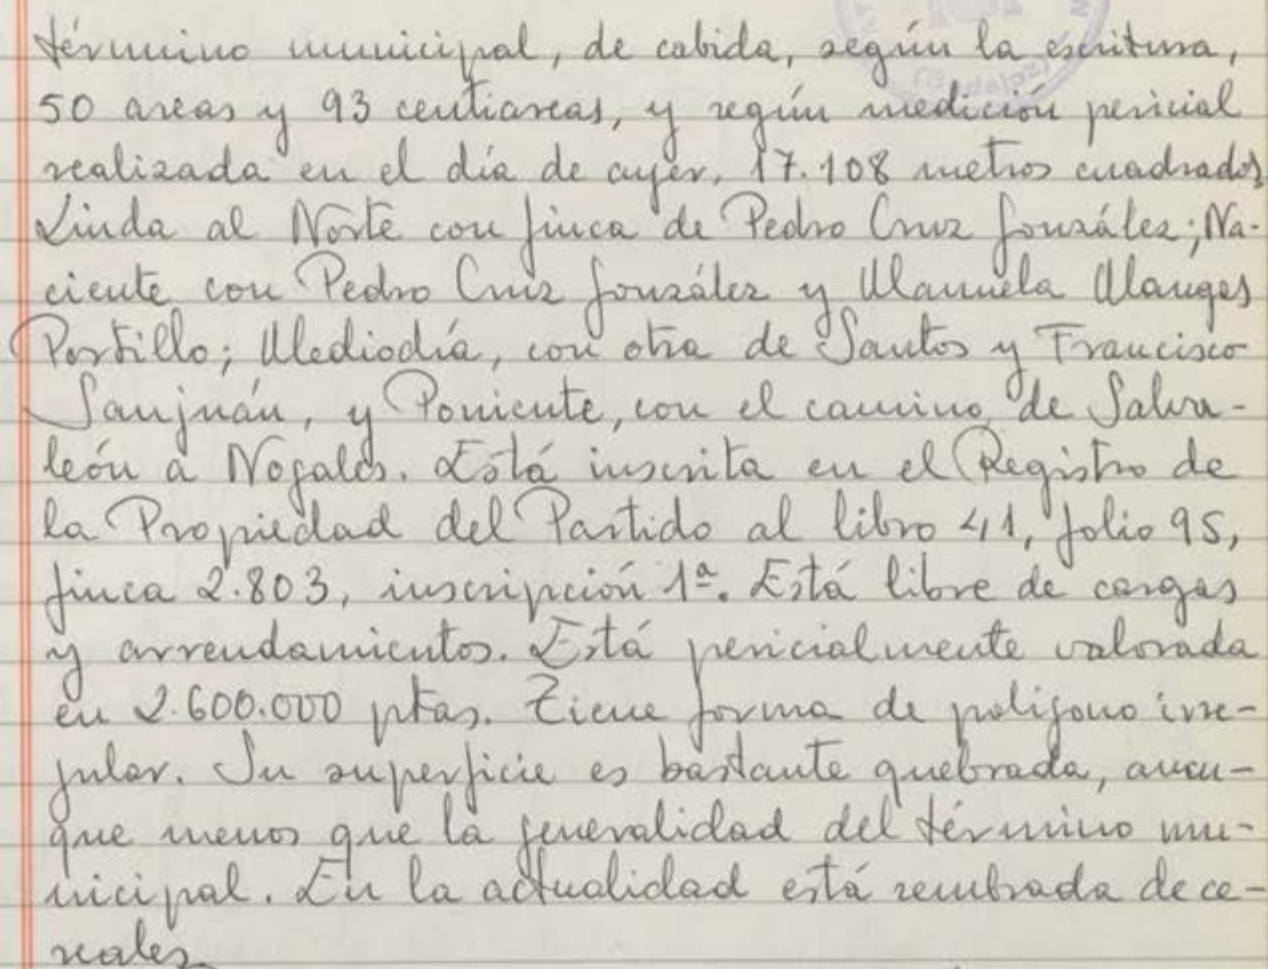 término municipal, de cabida, según la escritura,
50 areas y 93 centiareas, y según medición pericial
realizada en el día de ayer, 17.108 metros cuadrados
Linda al Norte con finca de Pedro Cruz González; Na-
ciente con Pedro Cruz González y Manuela Manges
Portillo; Mediodía, con otra de Santos y Francisco
Sanjuán, y Poniente, con el camino de Salva-
león a Nogales. Está inscrita en el Registro de
la Propiedad del Partido al libro 41, folio 95,
finca 2.803, inscripción 1ª. Está libre de cargas
y arrendamientos. Está pericialmente valorada
en 2.600.000 ptas. Tiene forma de polígono irre-
gular. Su superficie es bastante quebrada, aun-
que menos que la generalidad del término mu-
nicipal. En la actualidad está sembrada de ce-
reales
(Badajoz)